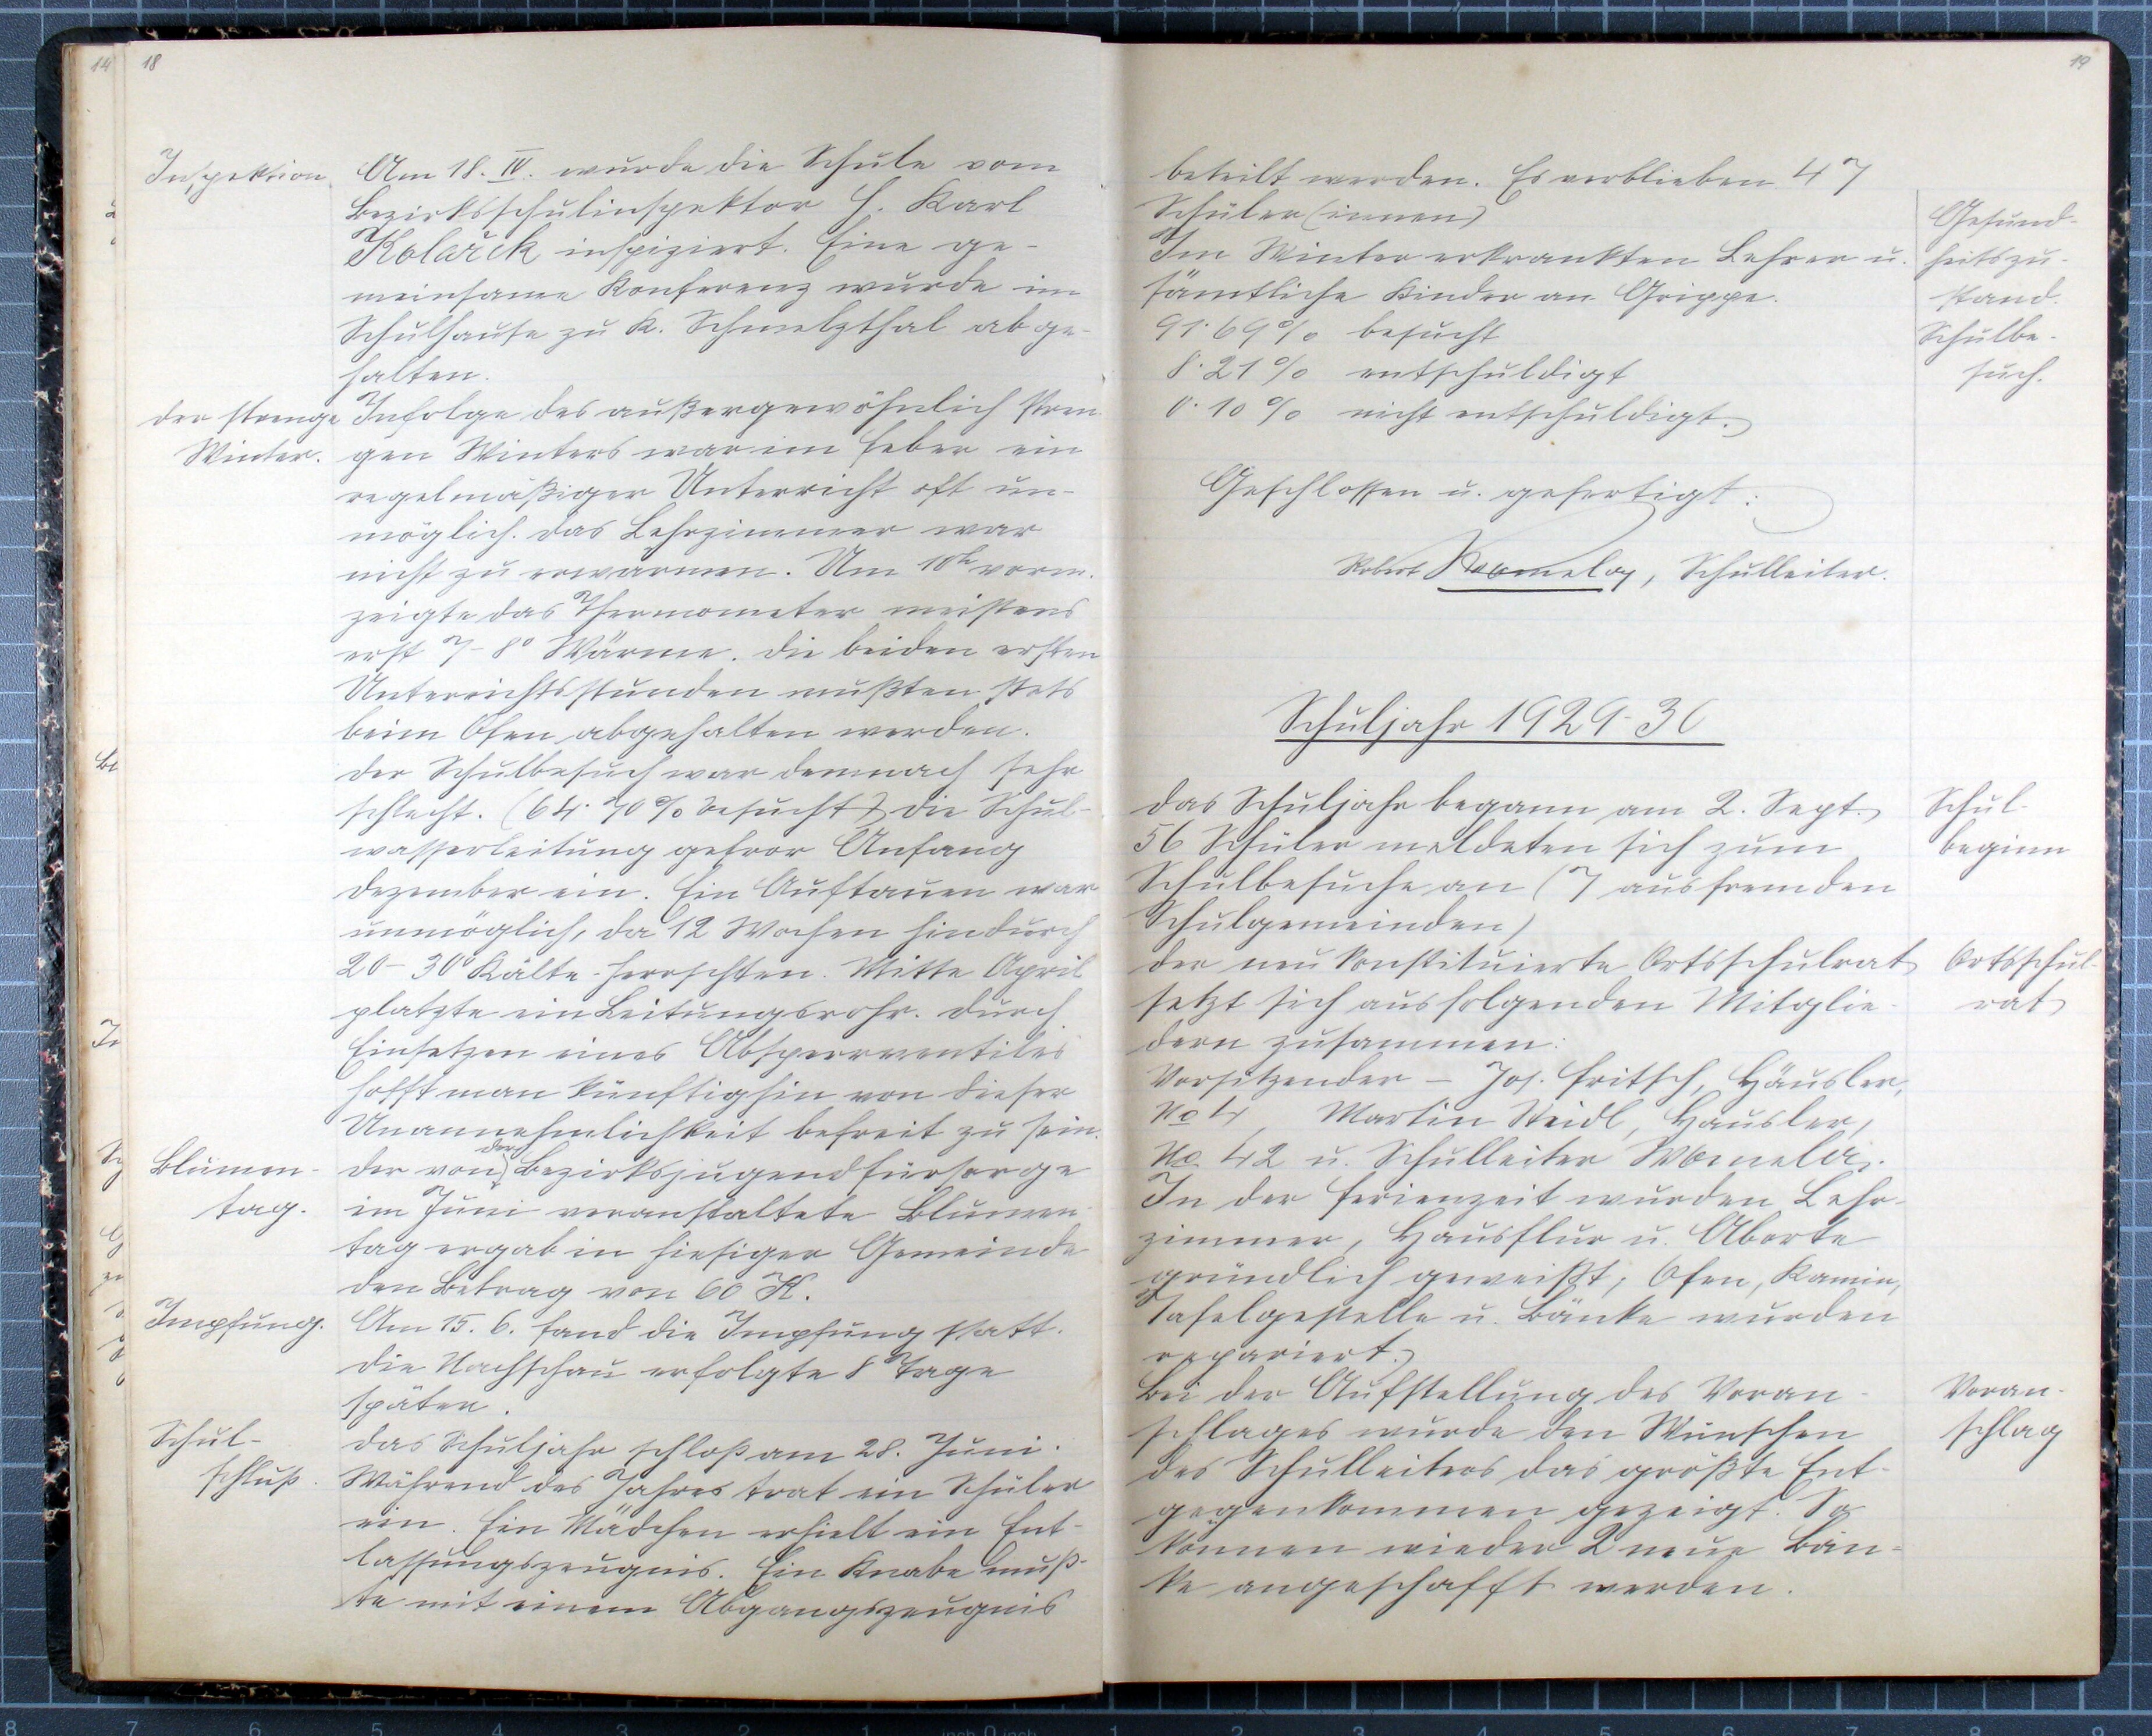 18
Inspektion. Am 18. IV. wurde die Schule vom
Bezirksschulinspektor H. Karl
Kolařik inspiziert. Eine ge-
meinsame Konferenz wurde im
Schulhause zu K. Schmelzthal abge-
halten.
Der strenge Winter. Infolge des außergewöhnlich stren-
gen Winters war im Feber ein
regelmäßiger Unterricht oft un-
möglich. Das Lehrzimmer war
nicht zu erwärmen. Um 10h vorm.
zeigte das Thermometer meistens
erst 7-8° Wärme. Die beiden ersten
Unterrichtsstunden mußten stets
beim Ofen abgehalten werden.
Der Schulbesuch war demnach sehr
schlecht. (64.70% besucht) Die Schul-
wasserleitung gefror Anfang
Dezember ein. Ein Auftauen war
unmöglich, da 12 Wochen hindurch
20-30° Kälte herrschten. Mitte April
platzte ein Leitungsrohr. Durch
Einsetzen eines Absperrventiles
hofft man künftighin von dieser
Unannehmlichkeit befreit zu sein.
Blumen-
tag.
Der von der Bezirksjugendfürsorge
im Juni veranstaltete Blumen-
tag ergab in hiesiger Gemeinde
den Betrag von 60 K.
Impfung. Am 15. 6. fand die Impfung statt.
Die Nachschau erfolgte 8 Tage
später.
Schul-
schluß.
Das Schuljahr schloß am 28. Juni.
Während des Jahres trat ein Schüler
ein. Ein Mädchen erhielt ein Ent-
lassungszeugnis. Ein Knabe muß-
te mit einem Abgangszeugnis
19
beteilt werden. Es verblieben 47
Schüler(innen)
Gesund-
heitszu-
stand.
Im Winter erkrankten Lehrer u.
sämtliche Kinder an Grippe.
Schulbe-
such.
91.69% besucht
8.21% entschuldigt
0.10% nicht entschuldigt.
Geschlossen u. gefertigt:
Robert , Schulleiter.
Schuljahr 1929-30
Das Schuljahr begann am 2. Sept.
Schul-
beginn
56 Schüler meldeten sich zum
Schulbesuche an (7 aus fremden
Schulgemeinden)
Der neukonstituierte Ortsschulrat
Ortsschul-
rat
setzt sich aus folgenden Mitglie-
dern zusammen:
Vorsitzender - Jos. Fritsch, Häusler,
No 4, Martin Neidl, Häusler,
No 42 u. Schulleiter
In der Ferienzeit wurden Lehr-
zimmer, Hausflur u. Aborte
gründlich geweißt; Ofen, Kamin,
Tafelgestelle u. Bänke wurden
repariert.
Bei der Aufstellung des Voran-
Voran-
schlag
schlages wurde den Wünschen
des Schulleiters das größte Ent-
gegenkommen gezeigt. So
können wieder 2 neue Bän-
ke angeschafft werden.